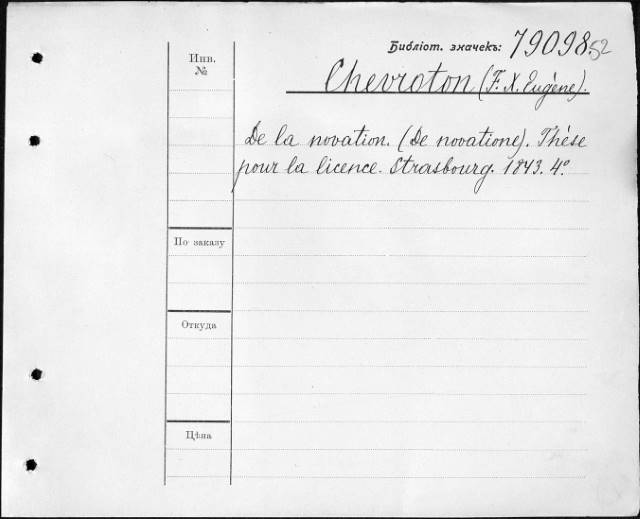 Библіот. значекъ: 79098.52
Инв.
№
Chevroton (F. X. Eugène).
De la novation. (De novatione). Thèse
pour la licence. Strasbourg. 1843. 4º.
По заказу
Откуда
Цѣна